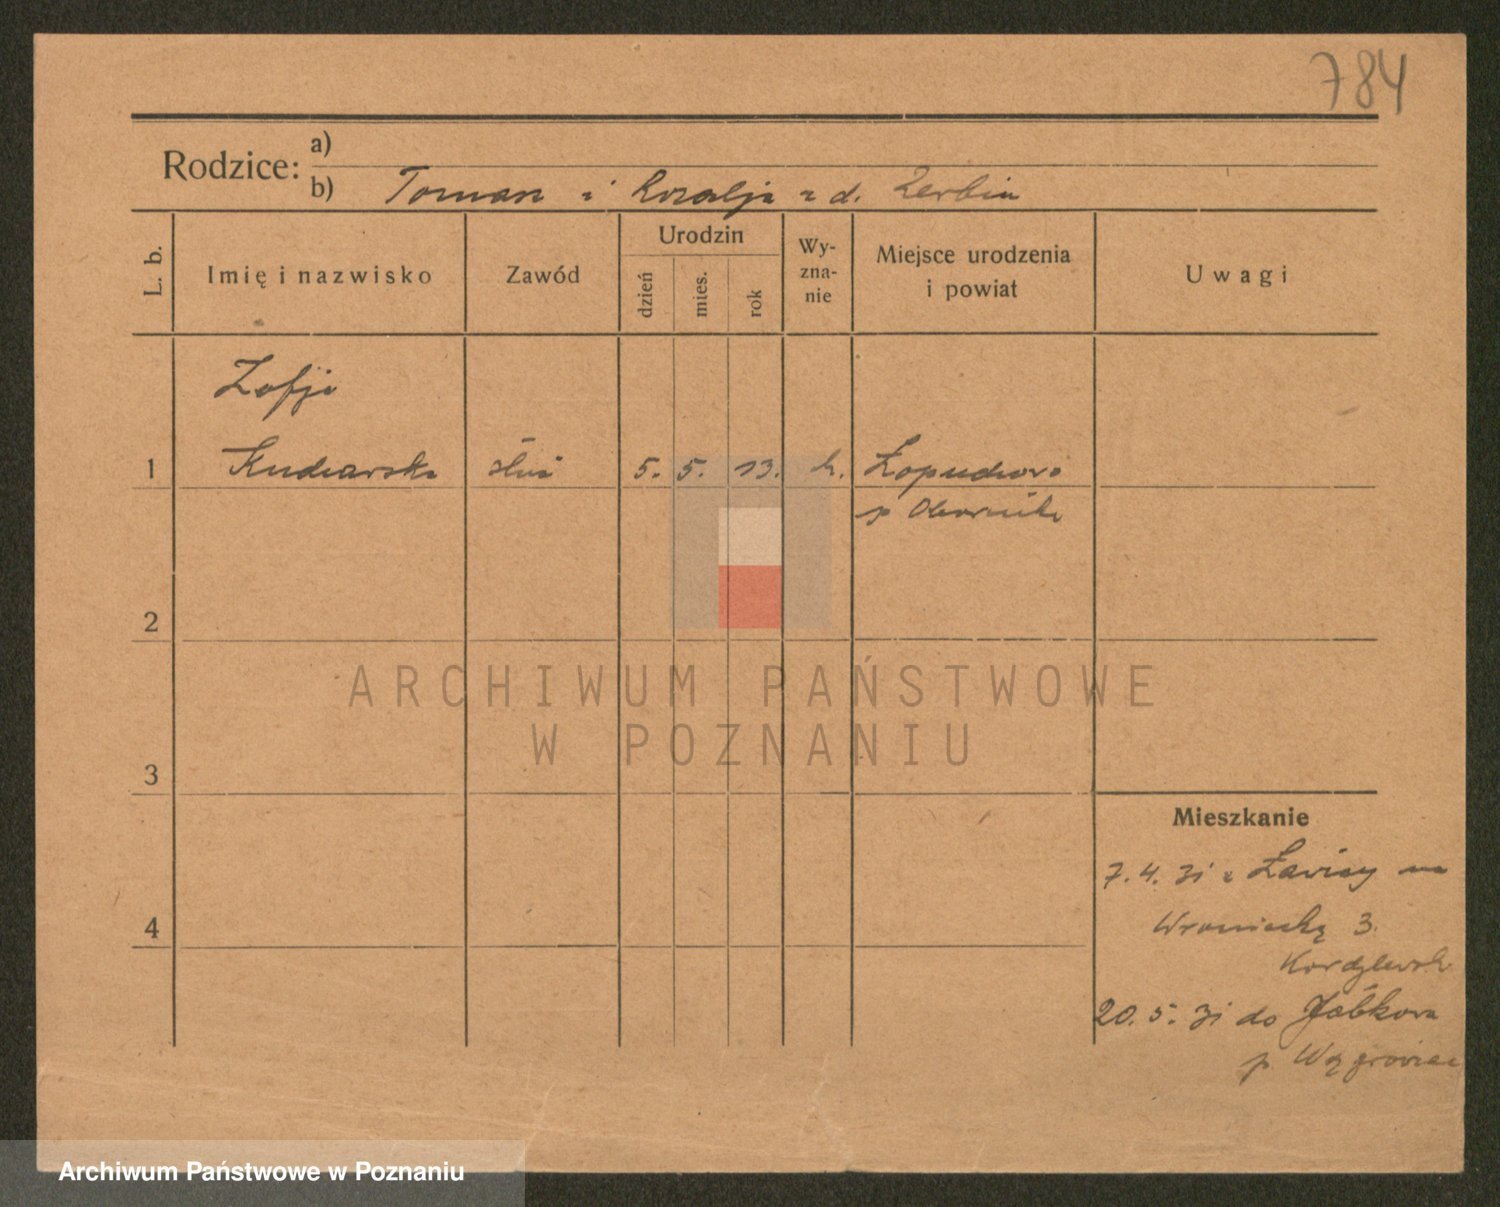 784
Rodzice:
a)
b) Tomasz i Rozalja z d. Zerbin
L. b.
Imię i nazwisko
Zawód
Urodzin
dzień
mies.
rok
Wy-
zna-
nie
Miejsce urodzenia
i powiat
Uwagi
Zofja
1 Kucharska służ 5. 5. 13. k. Łopuchowo
p Oborniki
2
3
4
ARCHIWUM PAŃSTWOWE
W POZNANIU
Mieszkanie
7.4.31 z Ławicy na
Wroniecką 3.
20.5.31 do Jabkowa
p. Wągrowiec
Archiwum Państwowe w Poznaniu